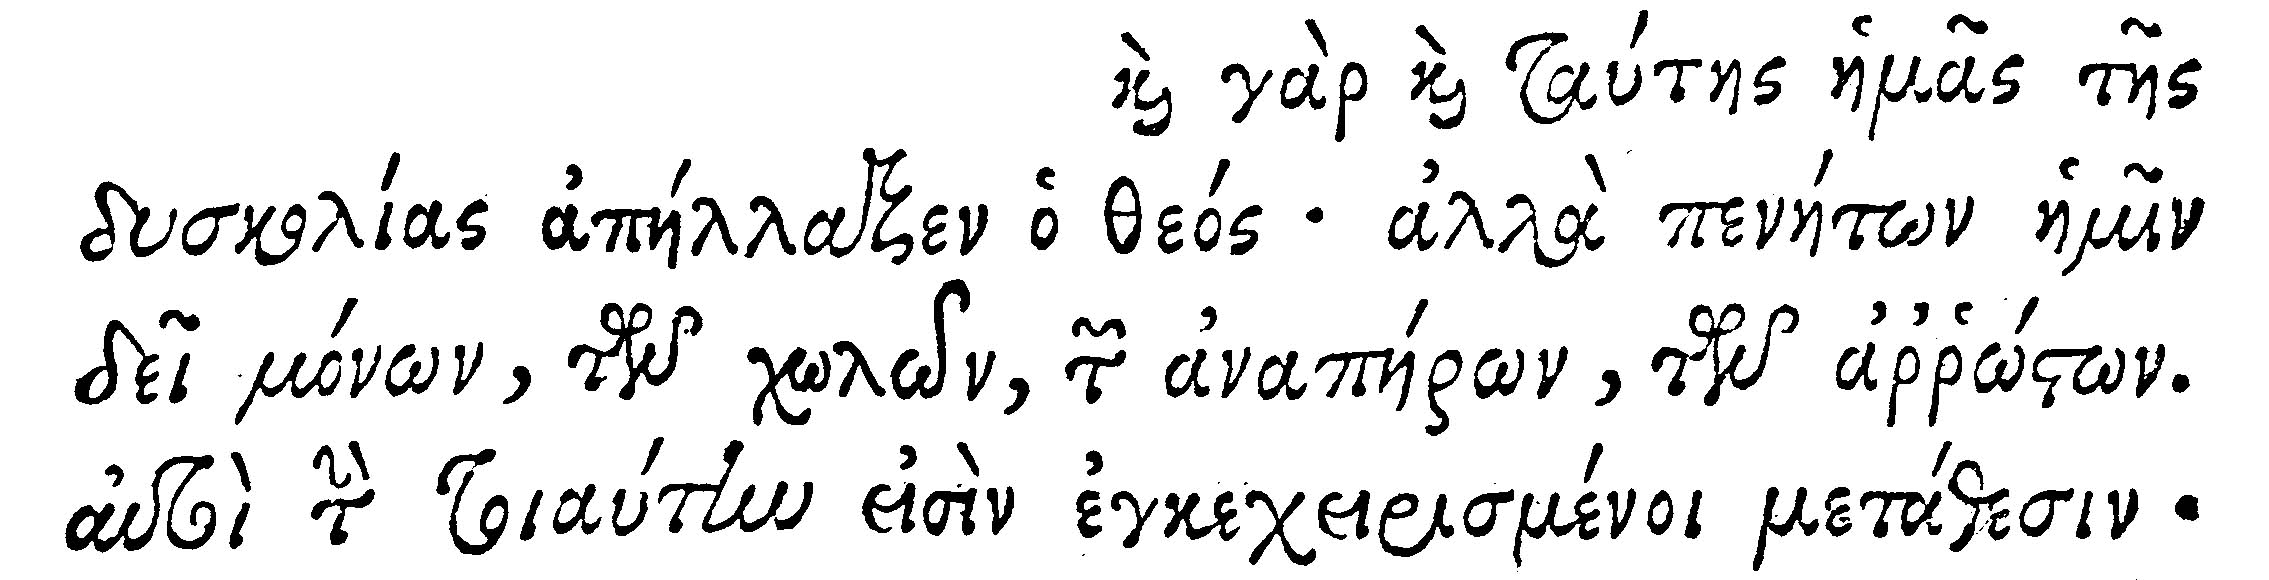 καὶ γὰρ καὶ ταύτης ἡμᾶς τῆς
δυσκολίας ἀπήλλαξεν ὁ θεός · ἀλλὰ πενήτων ἡμῖν
δεῖ μόνων, τῶν χωλῶν, τῶν ἀναπήρων, τῶν ἀῤῥώστων.
αὐτοὶ τὴν τοιαύτην εἰσὶν ἐγκεχειρισμένοι μετάθεσιν ·